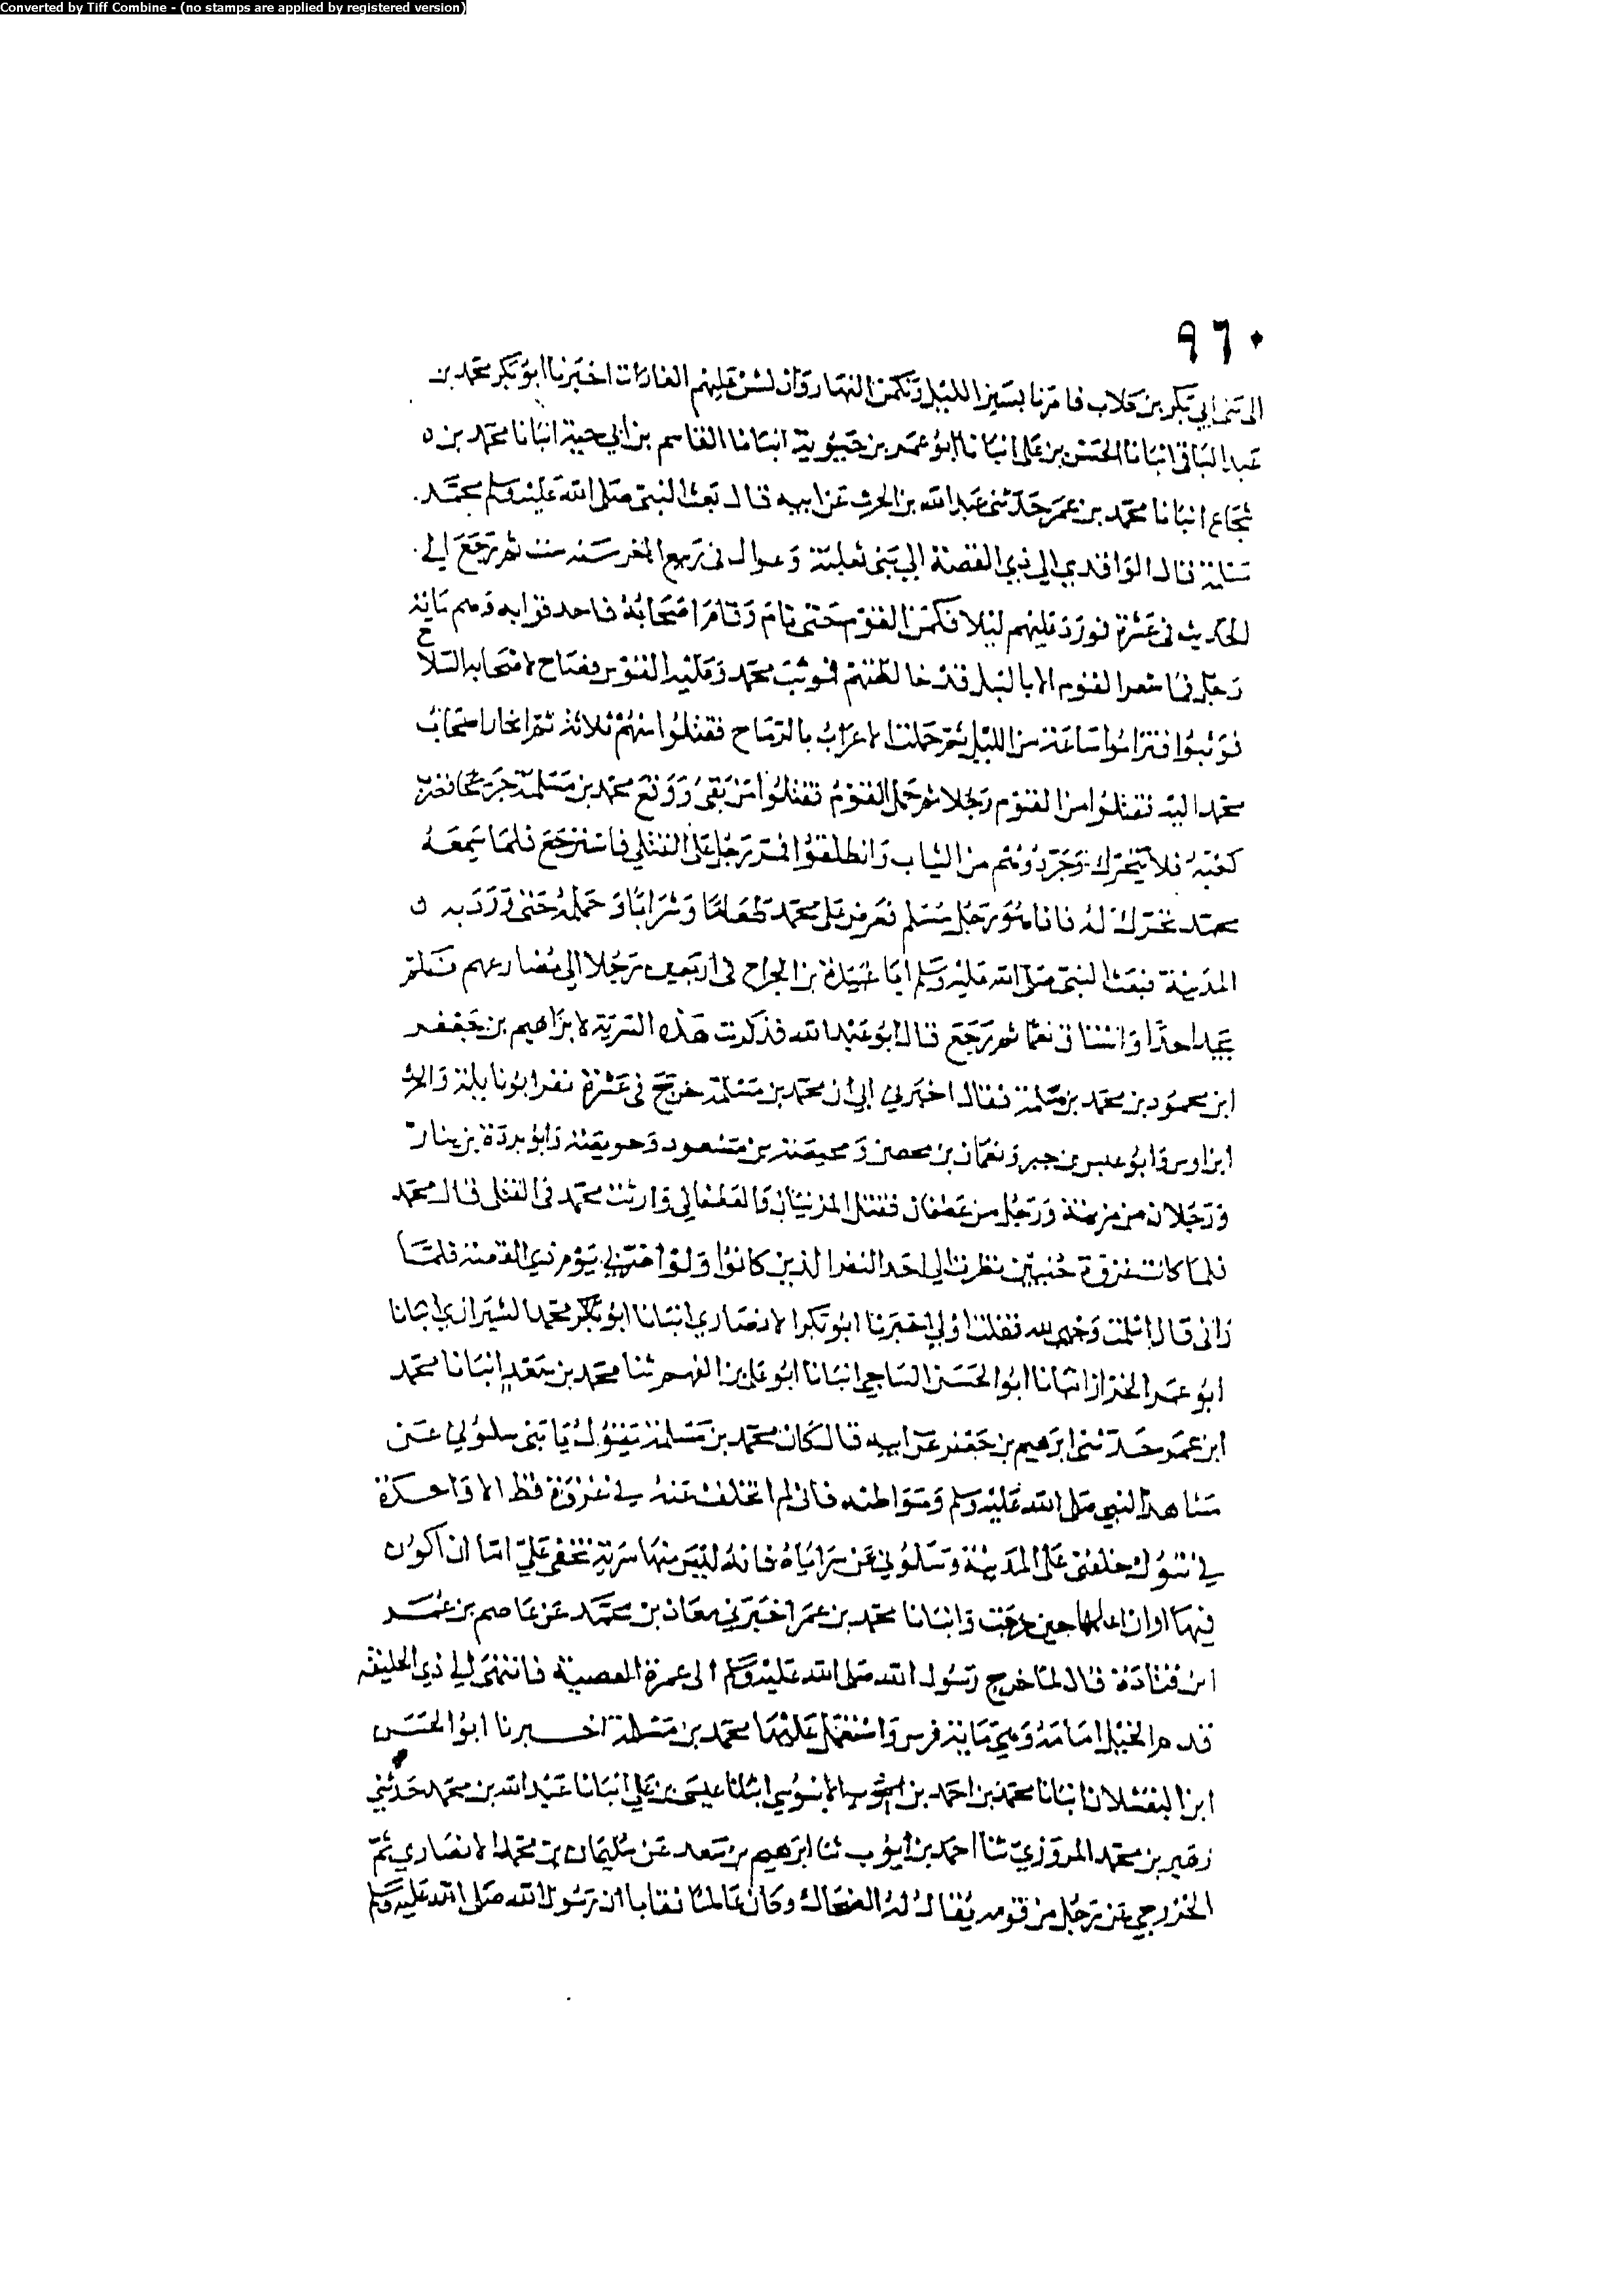 Converted by Tiff Combine - (no stamps are applied by registered version)
٩٦٠
الى بني ابي بكر بن كلاب فامرنا بسير الليل ونكمن النهار وان نشن عليهم الغارات اخبرنا ابو بكر محمد بن
عبد الباقي انبانا الحسن بن علي انبانا ابو عمر بن حيوية انبانا القاسم بن ابي حية انبانا محمد بن
شجاع انبانا محمد بن عمر حدثني عبد الله بن الحرث عن ابيه قال بعث النبي صلى الله عليه وسلم محمد
سلمة قال الواقدي الى ذي القصة الى بني ثعلبة وعوال في ربيع الاخر سنة ست ثم رجع الى
الحديث في عشرة فورد عليهم ليلا فكمن القوم حتى نام ونام اصحابه فاحدقوا به وهم ماية
رجل فما شعر القوم الا بالنبل قد خالطتهم فوثب محمد وعليه القوس فصاح لاصحابه السلاح
فوثبوا فتراموا ساعة من الليل ثم حملت الاعراب بالرماح فقتلوا منهم ثلاثة ثم انحاز اصحاب
محمد اليه فقتلوا من القوم رجلا ثم حمل القوم فقتلوا من بقي ووقع محمد بن مسلمة جريحا فضرب
كعبه فلا يتحرك وجردوهم من الثياب وانطلقوا فمر رجل على القتلى فاسترجع فلما سمعه
محمد تحرك له فاذا هو رجل مسلم فعرض على محمد طعاما وشرابا وحمله حتى ورد به
المدينة فبعث النبي صلى الله عليه وسلم ابا عبيدة بن الجراح في اربعين رجلا الى مصارعهم فلم
يجد احدا واستاق نعما ثم رجع قال ابو عبد الله فذكرت هذه السرية لابراهيم بن جعفر
ابن محمود بن محمد بن مسلمة فقال اخبرني ابي ان محمد بن مسلمة خرج في عشرة نفر ابو نايلة والحرث
ابن اوس وابو عبس بن جبر ونعمان بن عصر ومحيصة بن مسعود وحويصة وابو بردة بن نيار
ورجلان من مزينة ورجل من غطفان فقتل المزنيان والغطفاني وارتث محمد في القتلى قال محمد
فلما كانت غزوة خيبر نظرت الى احد النفر الذين كانوا ولوا ضربي يوم ذي القصة فلما
راني قال اسلمت وجهي لله فقلت اولى اخبرنا ابو بكر الانصاري انبانا ابو بكر محمد الشيرازي انبانا
ابو عمر الخزاز انبانا ابو الحسن الساجي انبانا ابو علي بن الفهم ثنا محمد بن سعد انبانا محمد
ابن عمر حدثني ابرهيم بن جعفر عن ابيه قال كان محمد بن مسلمة يقول يا بني سلوني عن
مشاهد النبي صلى الله عليه وسلم ومواطنه فاني لم اتخلف عنه في غزوة قط الا واحدة
في تبوك خلفني على المدينة وسلوني عن سراياه فانه ليس منها سرية تخفى علي اما ان اكون
فيها او ان اعلمها حين خرجت وانبانا محمد بن عمر اخبرني معاذ بن محمد عن عاصم بن عمر
ابن قتادة قال لما خرج رسول الله صلى الله عليه وسلم الى عمرة القضية فانتهى الى ذي الحليفة
قدم الخيل امامه وهي ماية فرس واستعمل عليها محمد بن مسلمة اخبرنا ابو الحسن
ابن البقشلان انبانا محمد بن احمد بن الابنوسي انبانا عيسى بن علي انبانا عبد الله بن محمد حدثني
زهير بن محمد المروزي ثنا احمد بن ايوب ثنا ابرهيم بن سعد عن سليمان بن محمد الانصاري ثم
الخزرجي عن رجل من قومه يقال له الضحاك وكان عالما نقابا ان رسول الله صلى الله عليه وسلم